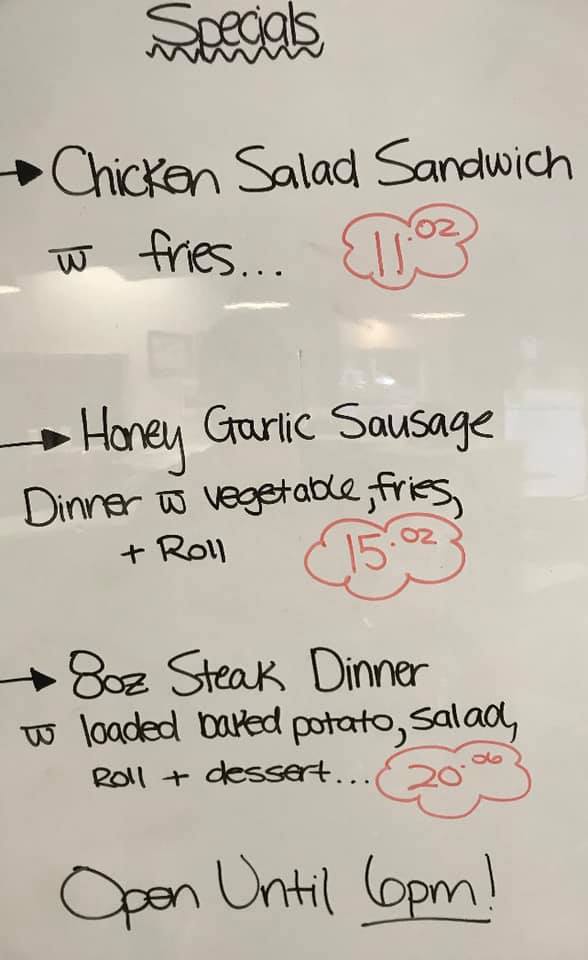 Specials
→ Chicken Salad Sandwich
w̅ fries... 11.02
→ Honey Garlic Sausage
Dinner w̅ vegetable, fries,
+ Roll 15.02
→ 8oz Steak Dinner
w̅ loaded baked potato, salad,
Roll + dessert... 20.06
Open Until 6pm!